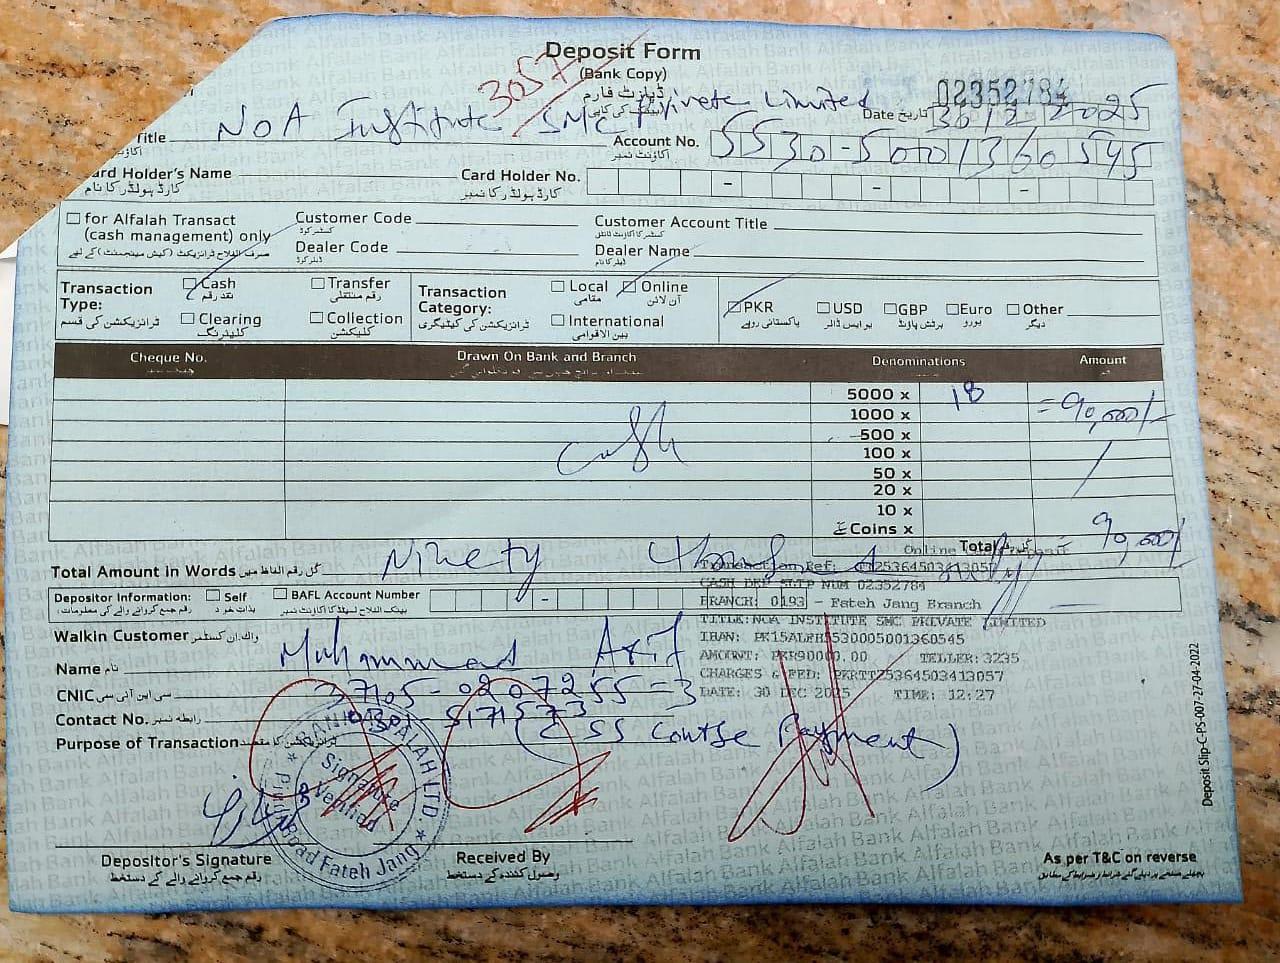 Deposit Form
(Bank Copy)
ڈپازٹ فارم
3057
02352784
Date تاریخ 30 12 2025
Title NOA Institute SMC Private Limited
Account No. 5530-5001360545
اکاؤنٹ نمبر
Card Holder's Name
کارڈ ہولڈر کا نام
Card Holder No.
کارڈ ہولڈر کا نمبر
for Alfalah Transact
(cash management) only
Customer Code
کسٹمر کوڈ
Customer Account Title
Dealer Code
ڈیلر کوڈ
Dealer Name
ڈیلر کا نام
Transaction Type:
ٹرانزیکشن کی قسم
Cash
نقد رقم
Transfer
رقم منتقلی
Clearing
کلیئرنگ
Collection
کلیکشن
Transaction Category:
ٹرانزیکشن کی کیٹیگری
Local
مقامی
Online
آن لائن
International
بین الاقوامی
PKR
پاکستانی روپے
USD
یو ایس ڈالر
GBP
برٹش پاؤنڈ
Euro
یورو
Other
دیگر
Cheque No. Drawn On Bank and Branch Denominations Amount
5000 x 18 = 90,000/-
1000 x
500 x
100 x
50 x
20 x
10 x
Coins x
Cash
Total = 90,000/-
Total Amount in Words کل رقم الفاظ میں Ninety Thousand only
Online Deposit
Transaction Ref:
CASH DEP SLIP NUM 02352784
BRANCH: 0193 - Fateh Jang Branch
TITLE:NOA INSTITUTE SMC PRIVATE LIMITED
IBAN: PK15ALFH5530005001360545
AMOUNT: PKR90000.00 TELLER:3235
CHARGES & FED: PKRTT25364503413057
DATE: 30 DEC 2025 TIME: 12:27
Depositor Information:
Self
بذات خود
BAFL Account Number
Walkin Customer واک ان کسٹمر
Name نام Muhammad Arif
CNIC سی این آئی سی 37105-0207255-3
Contact No. رابطہ نمبر 0301-5171573
Purpose of Transaction (CSS Course Payment)
BANK ALFALAH LTD
Signature Verified
Pindi Road Fateh Jang
Depositor's Signature
رقم جمع کروانے والے کے دستخط
Received By
وصول کنندہ کے دستخط
As per T&C on reverse
Deposit Slip-C-PS-007-27-04-2022